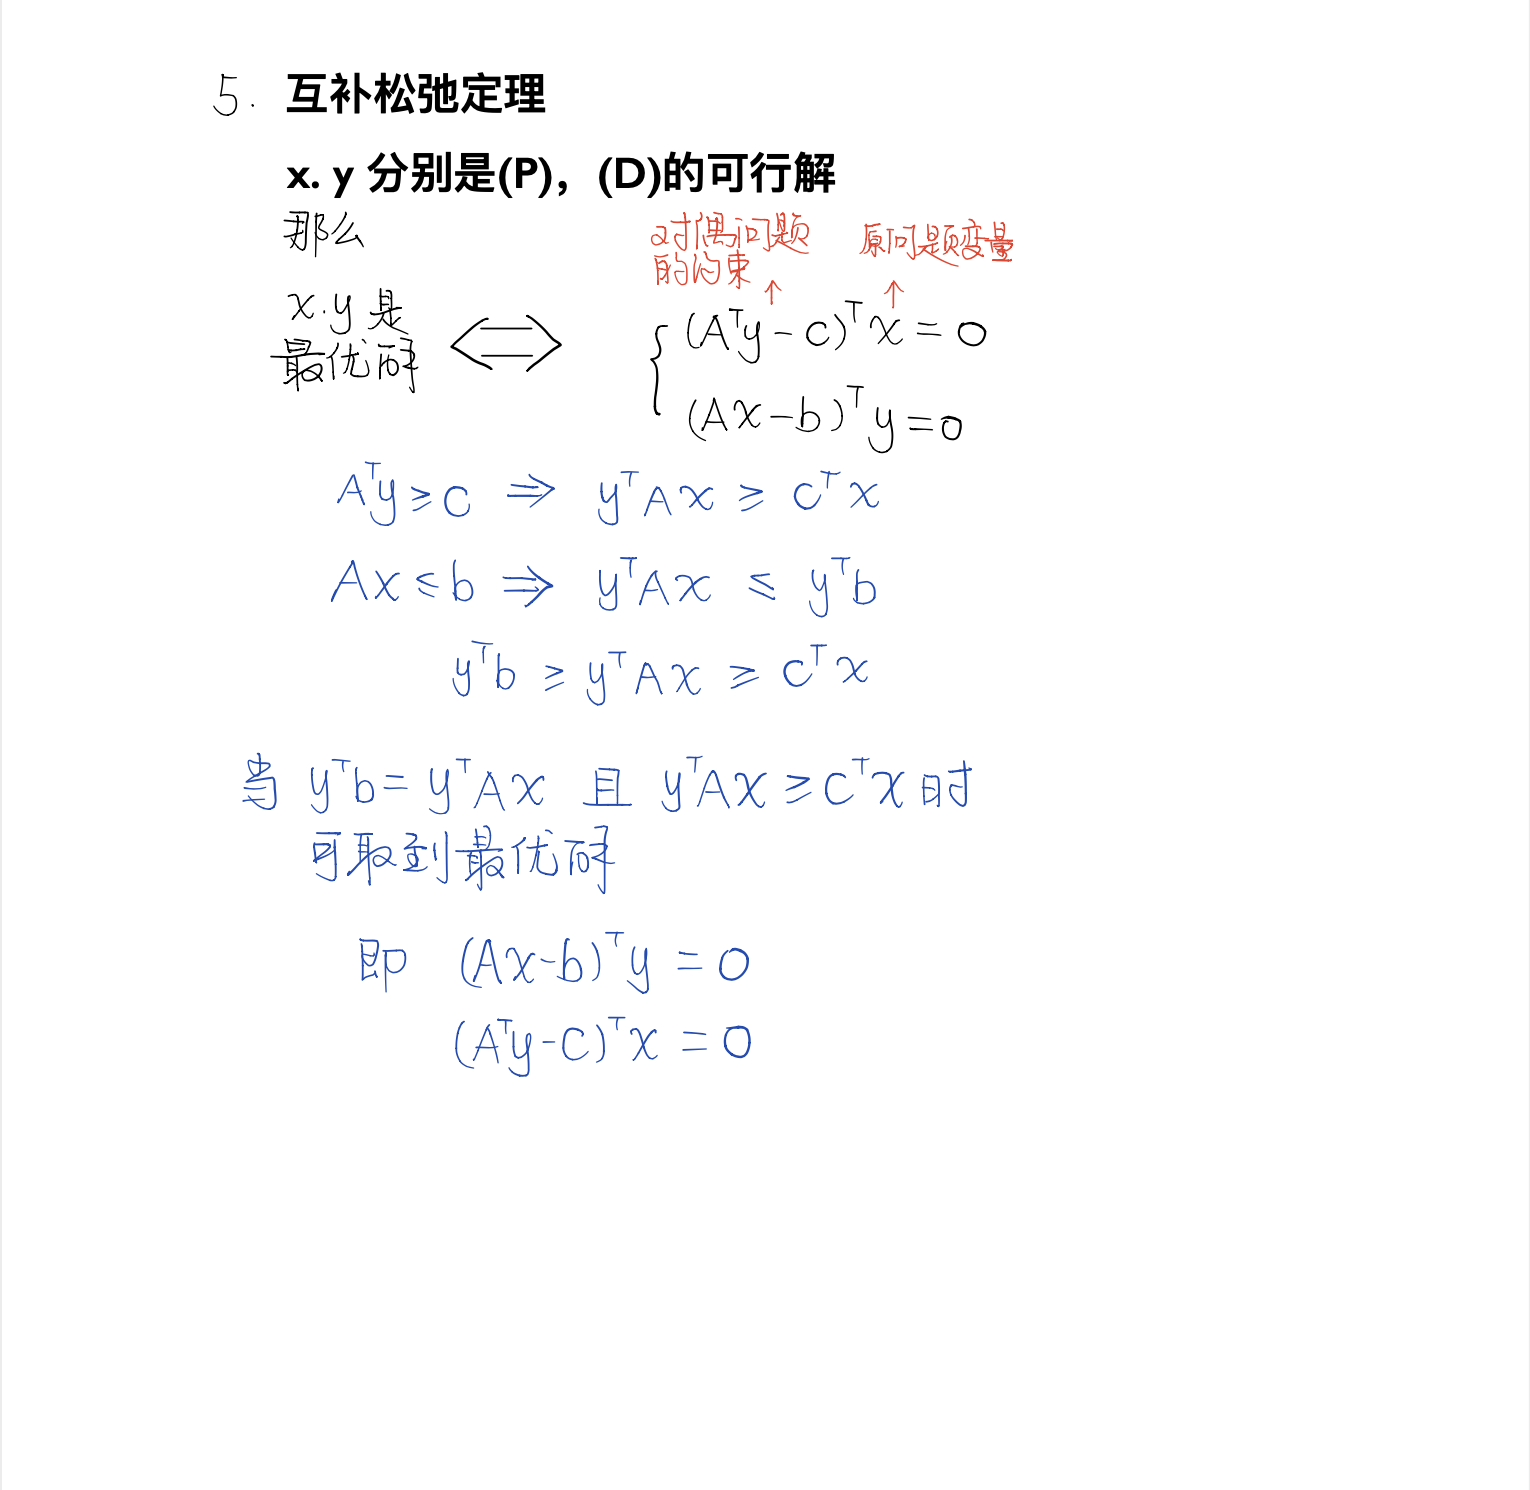 5. 互补松弛定理
x. y 分别是(P)，(D)的可行解
那么
对偶问题
的约束
原问题变量
↑ ↑
x.y 是
最优解
⟺
{ (Aᵀy-c)ᵀx=0
(Ax-b)ᵀy=0
Aᵀy≥c ⇒ yᵀAx ≥ cᵀx
Ax≤b ⇒ yᵀAx ≤ yᵀb
yᵀb ≥ yᵀAx ≥ cᵀx
当 yᵀb= yᵀAx 且 yᵀAx≥cᵀx 时
可取到最优解
即 (Ax-b)ᵀy=0
(Aᵀy-c)ᵀx=0